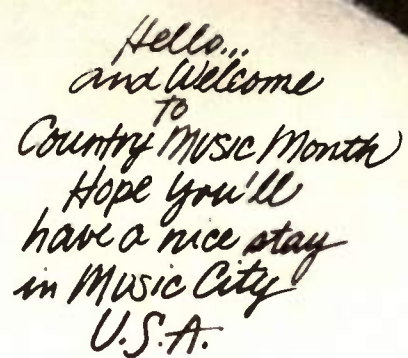 Hello...
and Welcome
TO
Country Music Month
Hope you'll
have a nice stay
in Music City
U.S.A.